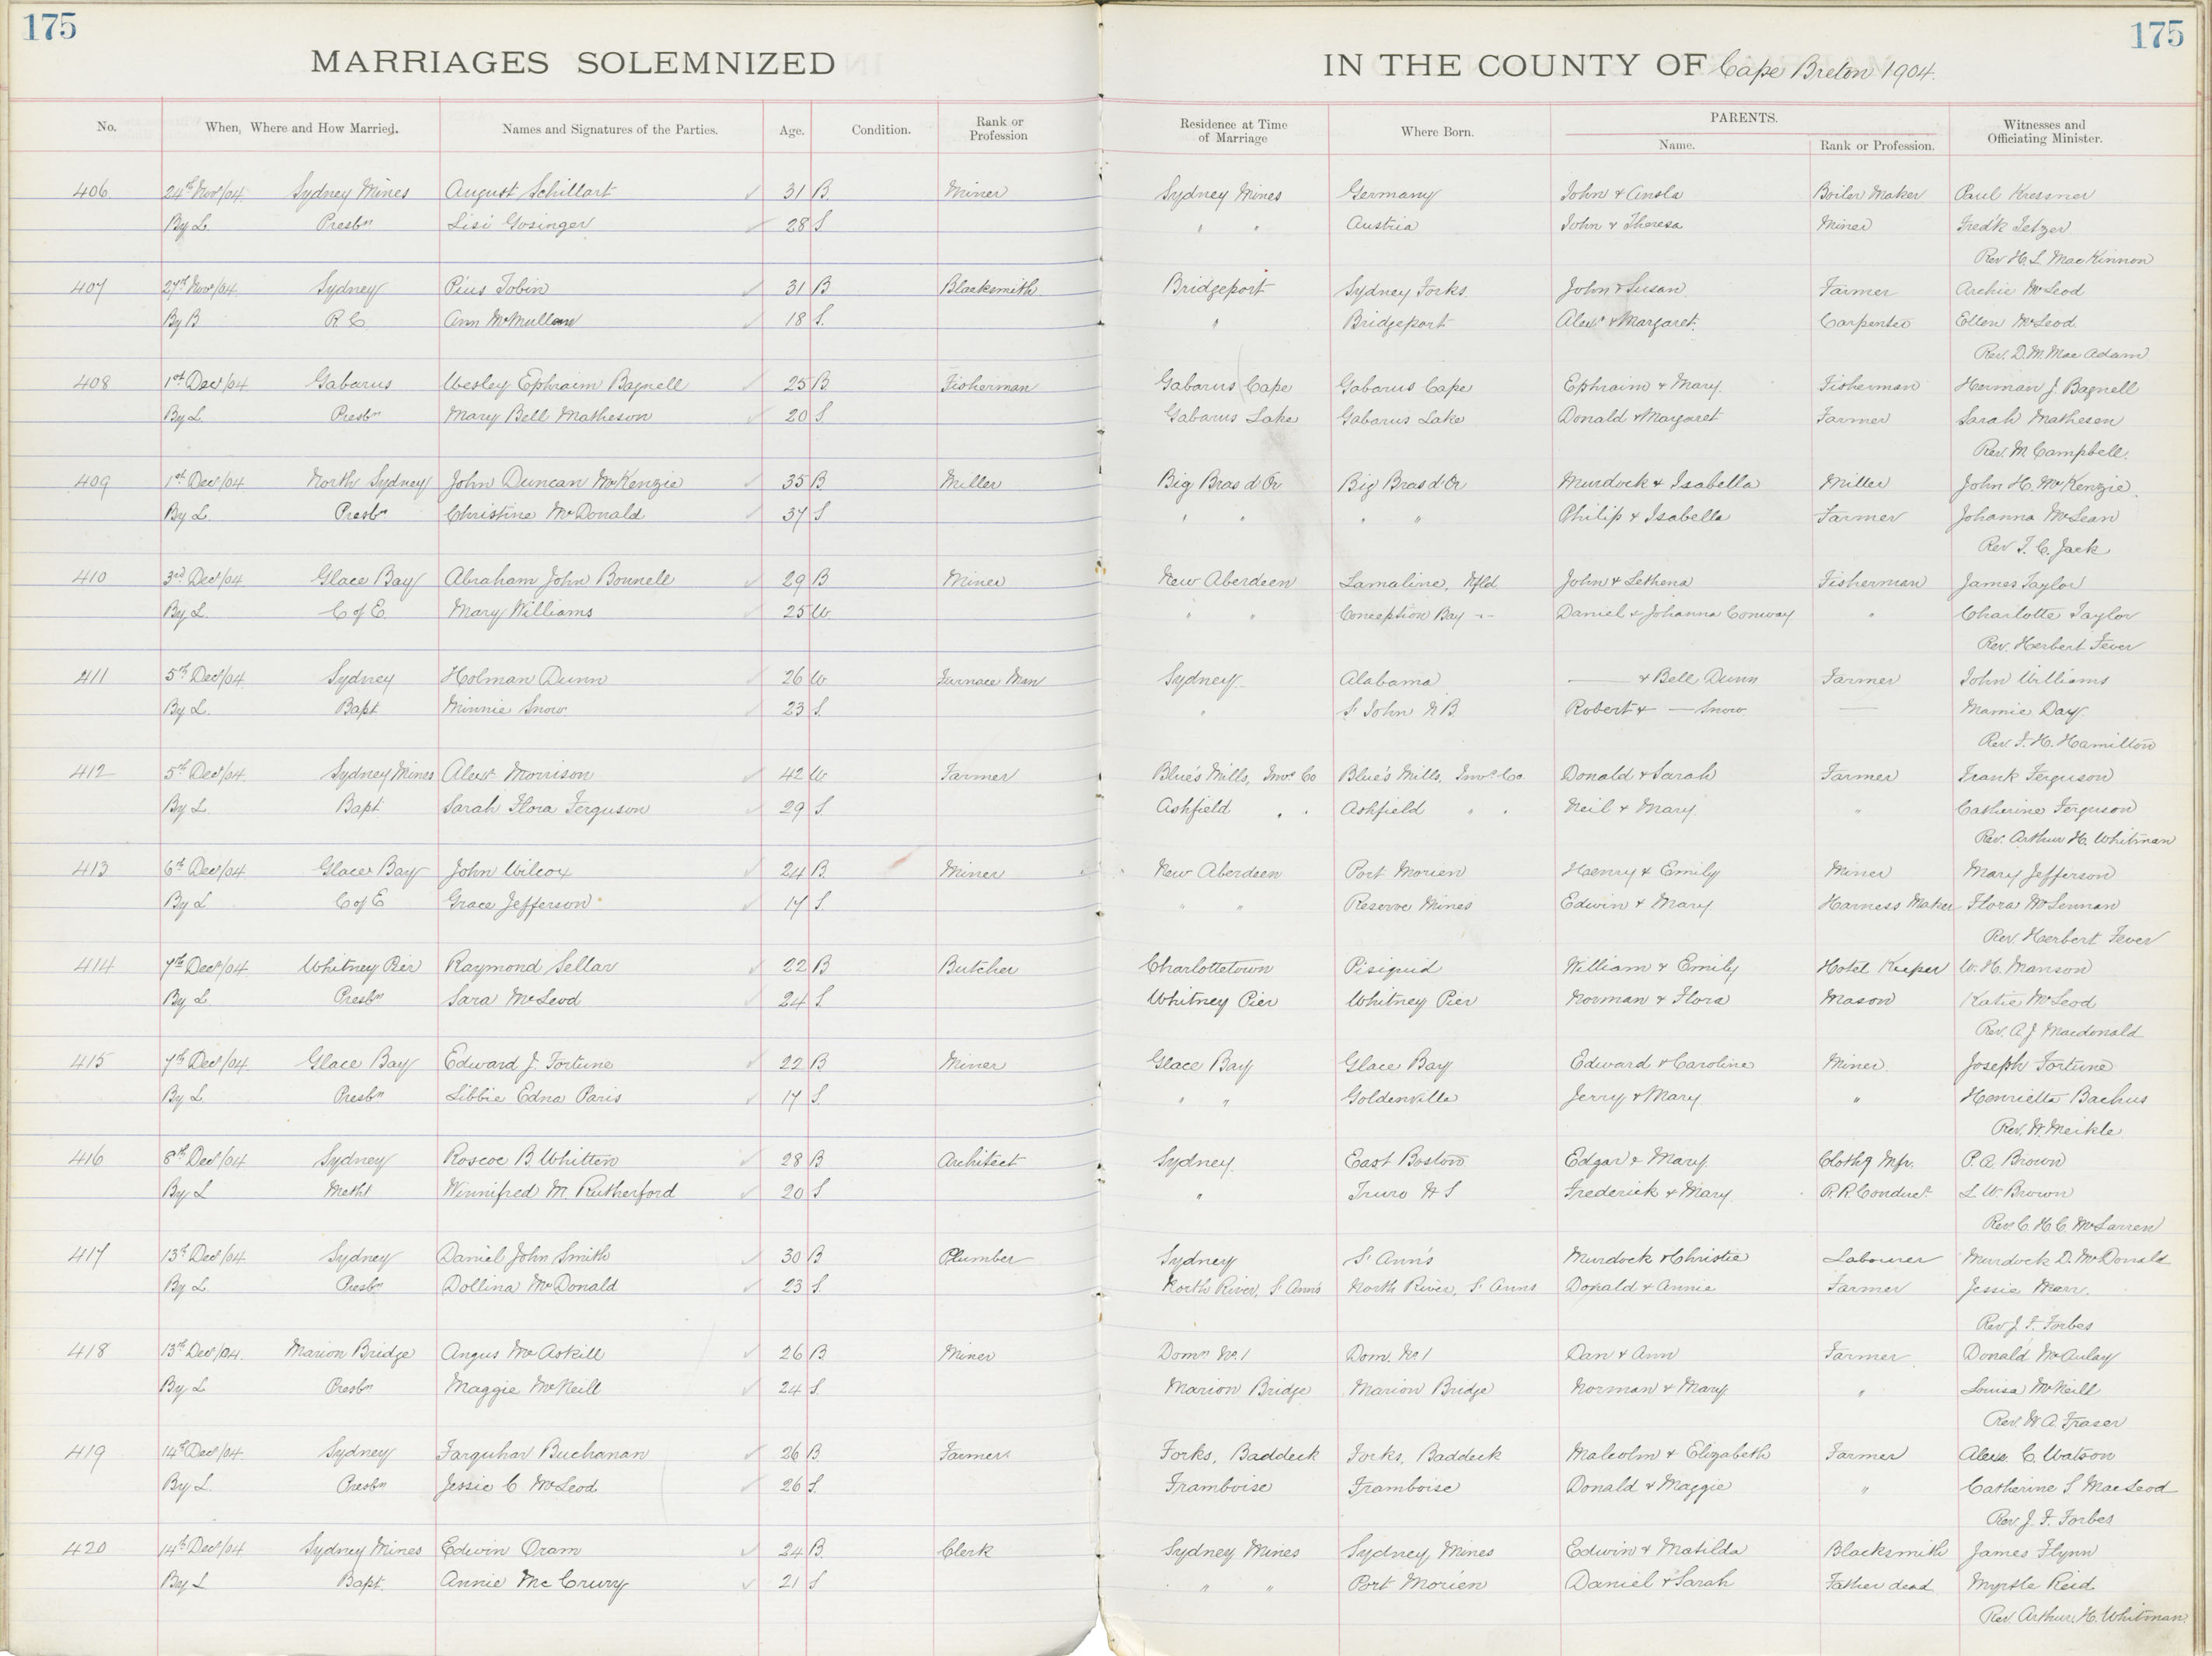 175 175
MARRIAGES SOLEMNIZED IN THE COUNTY OF Cape Breton 1904.
No. When, Where and How Married. Names and Signatures of the Parties. Age. Condition. Rank or Profession Residence at Time of Marriage Where Born. PARENTS. Name. Rank or Profession. Witnesses and Officiating Minister.
406 24th Nov/04 Sydney Mines August Schillart 31 B. Miner Sydney Mines Germany John & Boiler Maker Paul Kressner
By L. Presbn Lisi Gosinger 28 S " " Austria John & Theresa Miner Fred'k Setzer
Rev H. L MacKinnon
407 27th Nov/04 Sydney Pius Tobin 31 B Blacksmith Bridgeport Sydney Forks John & Susan Farmer Archie McLeod
By B R C Ann McMullan 18 S. " Bridgeport Alexr & Margaret Carpenter Ellen McLeod
Rev. D. M. MacAdam
408 1st Dec/04 Gabarus Wesley Ephraim Bagnell 25 B. Fisherman Gabarus Cape Gabarus Cape Ephraim & Mary Fisherman Herman J. Bagnell
By L. Presbn Mary Bell Matheson 20 S Gabarus Lake Gabarus Lake Donald & Margaret Farmer Sarah Matheson
Rev. M Campbell.
409 1st Dec/04 North Sydney John Duncan McKenzie 35 B. Miller Big Bras d'Or Big Bras d'Or Murdock & Isabella Miller John H. McKenzie
By L. Presbn Christine McDonald 37 S " " " " Philip & Isabella Farmer Johanna McLean
Rev T. C. Jack
410 3rd Dec/04 Glace Bay Abraham John Bonnell 29 B Miner New Aberdeen Lamaline, Nfld John & Lethena Fisherman James Taylor
By L. C of E. Mary Williams 25 W. " " Conception Bay " Daniel & Johanna Conway " Charlotte Taylor
Rev. Herbert Fever
411 5th Dec/04 Sydney Holman Dunn 26 W Furnace Man Sydney Alabama — & Bell Dunn Farmer John Williams
By L. Bapt Minnie Snow 23 S. " St John N B. Robert & — Snow — Mamie Day
Rev. F. H. Hamilton
412 5th Dec/04 Sydney Mines Alexr Morrison 42 W Farmer Blue's Mills, Invs Co Blue's Mills, Invs Co Donald & Sarah Farmer Frank Ferguson
By L Bapt Sarah Flora Ferguson 29 S Ashfield " " Ashfield " " Neil & Mary " Catherine Ferguson
Rev. Arthur H. Whitman
413 6th Dec/04 Glace Bay John Wilcox 24 B. Miner New Aberdeen Port Morien Henry & Emily Miner Mary Jefferson
By L C of E Grace Jefferson 17 S. " " Reserve Mines Edwin & Mary Harness Maker Flora McLennan
Rev. Herbert Fever
414 7th Dec/04 Whitney Pier Raymond Sellar 22 B Butcher Charlottetown Pisiquid William & Emily Hotel Keeper W. H. Manson
By L. Presbn Sara McLeod 24 S Whitney Pier Whitney Pier Norman & Flora Mason Katie McLeod
Rev. A J Macdonald
415 7th Dec/04 Glace Bay Edward J. Fortune 22 B Miner Glace Bay Glace Bay Edward & Caroline Miner Joseph Fortune
By L Presbn Libbie Edna Paris 17 S. " " Goldenville Jerry & Mary " Henrietta Bachus
Rev. W. Meikle
416 8th Dec/04 Sydney Roscoe B Whitten 28 B Architect Sydney. East Boston Edgar & Mary Clothg Mfr. P. A. Brown
By L Metht Winnifred M. Rutherford 20 S " Truro N S Frederick & Mary R. R. Conduct. L. W. Brown
Rev C H C McLarren
417 13th Dec/04 Sydney Daniel John Smith 30 B Plumber Sydney St Ann's Murdock & Christie Labourer Murdock D. McDonald
By L. Presbn Dollina McDonald 23 S. North River, St Ann's North River, St Anns Donald & Annie Farmer Jessie Marr.
Rev J. F. Forbes
418 13th Dec/04. Marion Bridge Angus McAskill 26 B. Miner Domn No. 1 Dom. No 1 Dan & Ann Farmer Donald McAulay
By L Presbn Maggie McNeill 24 S. Marion Bridge Marion Bridge Norman & Mary " Louisa McNeill
Rev. W A. Fraser
419 14th Dec/04. Sydney Farquhar Buchanan 26 B. Farmer Forks, Baddeck Forks, Baddeck Malcolm & Elizabeth Farmer Alexr. C. Watson
By L. Presbn Jessie C McLeod 26 S. Framboise Framboise Donald & Maggie " Catherine S MacLeod
Rev J. F. Forbes
420 14th Dec/04 Sydney Mines Edwin Oram 24 B. Clerk Sydney Mines Sydney Mines Edwin & Matilda Blacksmith James Flynn
By L Bapt. Annie McCrury 21 S " " Port Morien Daniel & Sarah Father dead Myrtle Reid
Rev. Arthur H. Whitman